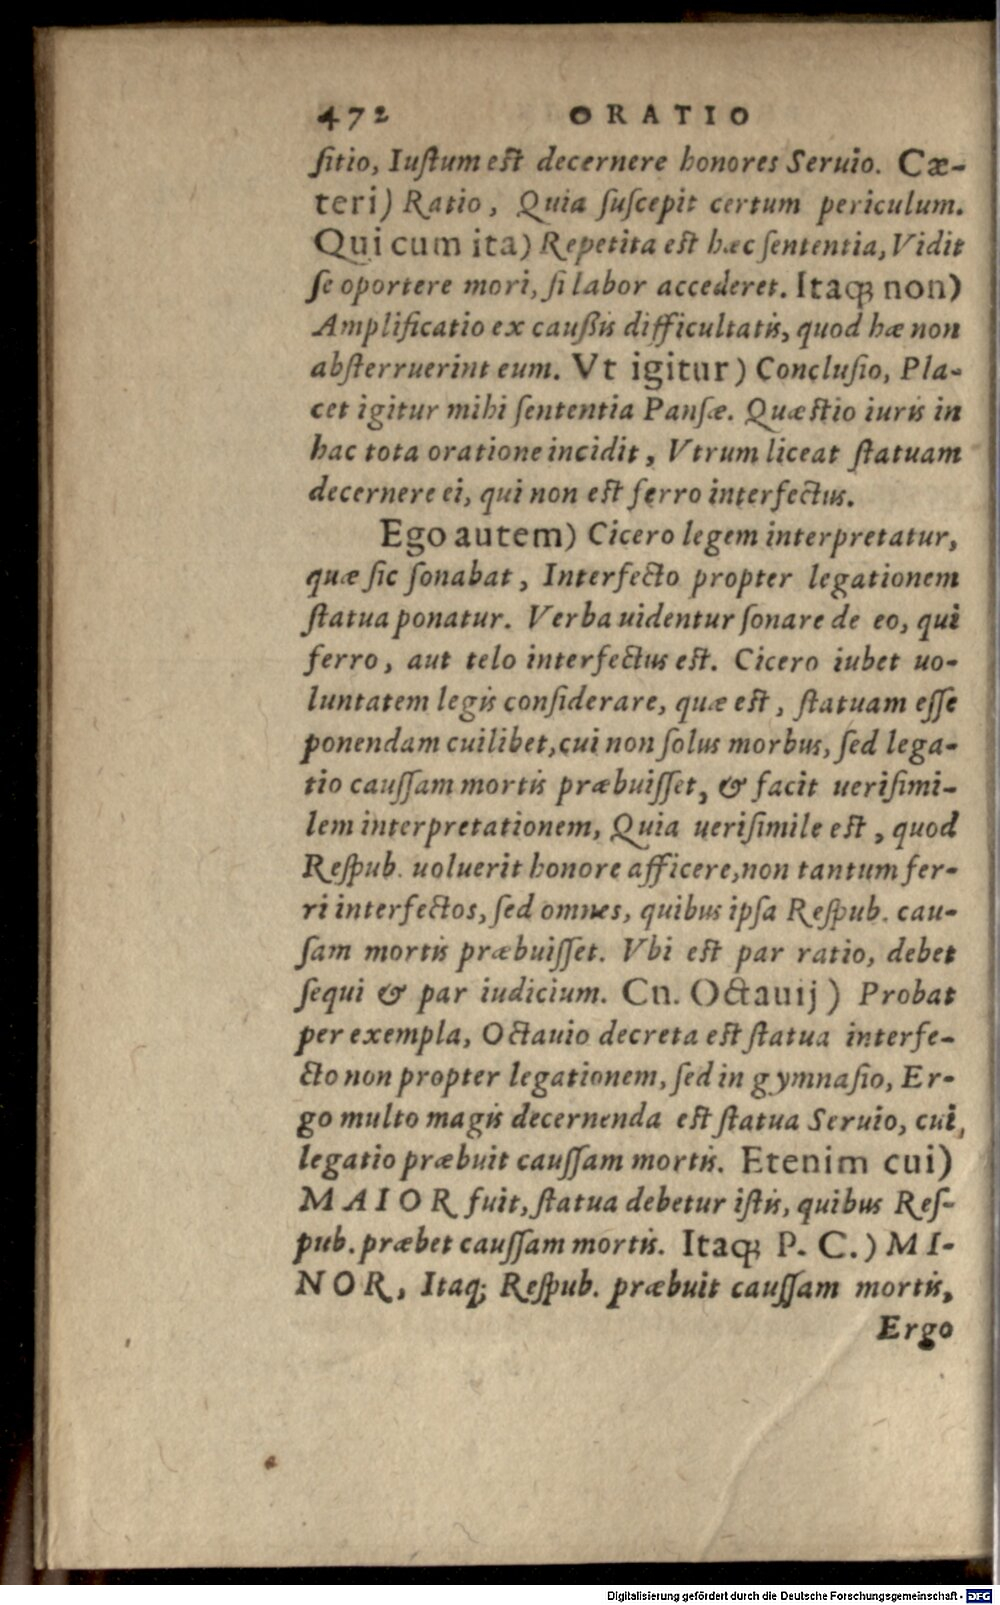 472 ORATIO
ſitio, Iuſtum eſt decernere honores Seruio. Cæ-
teri) Ratio, Quia ſuſcepit certum periculum.
Qui cum ita) Repetita eſt hæc ſententia, Vidit
ſe oportere mori, ſi labor accederet. Itaqꝫ non)
Amplificatio ex caußis difficultatis, quod hæ non
abſterruerint eum. Vt igitur) Concluſio, Pla-
cet igitur mihi ſententia Panſæ. Quæſtio iuris in
hac tota oratione incidit, Vtrum liceat ſtatuam
decernere ei, qui non eſt ferro interfectus.
Ego autem) Cicero legem interpretatur,
quæ ſic ſonabat, Interfecto propter legationem
ſtatua ponatur. Verba uidentur ſonare de eo, qui
ferro, aut telo interfectus eſt. Cicero iubet uo-
luntatem legis conſiderare, quæ eſt, ſtatuam eſſe
ponendam cuilibet, cui non ſolus morbus, ſed lega-
tio cauſſam mortis præbuiſſet, & facit ueriſimi-
lem interpretationem, Quia ueriſimile eſt, quod
Reſpub. uoluerit honore afficere, non tantum fer-
ri interfectos, ſed omnes, quibus ipſa Reſpub. cau-
ſam mortis præbuiſſet. Vbi eſt par ratio, debet
ſequi & par iudicium. Cn. Octauij) Probat
per exempla, Octauio decreta eſt ſtatua interfe-
cto non propter legationem, ſed in gymnaſio, Er-
go multo magis decernenda eſt ſtatua Seruio, cui,
legatio præbuit cauſſam mortis. Etenim cui)
MAIOR fuit, ſtatua debetur iſtis, quibus Reſ-
pub. præbet cauſſam mortis. Itaqꝫ P. C.) MI-
NOR, Itaq; Reſpub. præbuit cauſſam mortis,
Ergo
Digitalisierung gefördert durch die Deutsche Forschungsgemeinschaft - DFG